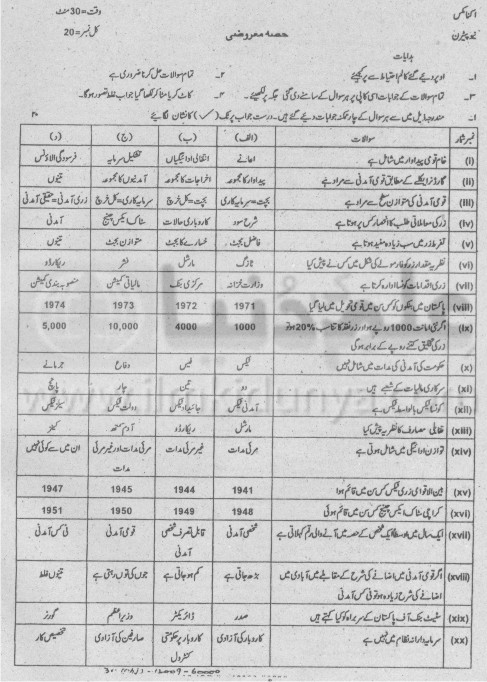 اکنامکس
وقت=30 منٹ
نیو پیٹرن
حصہ معروضی
کل نمبر=20
ہدایات
۱۔ اوپر دیئے گئے کالم احتیاط سے پر کیجئے
۲۔ تمام سوالات حل کرنا ضروری ہے
۳۔ تمام سوالات کے جوابات اسی کاپی پر ہر سوال کے سامنے دی گئی جگہ پر لکھیئے۔
۴۔ کاٹ کر یا مٹا کر لکھا گیا جواب غلط تصور ہوگا۔
۱۔ مندرجہ ذیل میں سے ہر سوال کے چار ممکنہ جوابات دیئے گئے ہیں۔ درست جواب پر ٹک (✓) کا نشان لگائیے ۲۰
نمبر شمار سوالات (الف) (ب) (ج) (د)
(i) خام قومی پیداوار میں شامل ہے اعانے انتقالی ادائیگیاں تشکیل سرمایہ فرسودگی الاؤنس
(ii) گارڈنر ایکلے کے مطابق قومی آمدنی سے مراد ہے پیداوار کا مجموعہ اخراجات کا مجموعہ آمدنیوں کا مجموعہ تینوں
(iii) قومی آمدنی کی متوازن سطح سے مراد ہے بچت=سرمایہ کاری بچت=کل خرچ سرمایہ کاری=کل خرچ زری آمدنی=حقیقی آمدنی
(iv) زر کی معاملاتی طلب کا انحصار کس پر ہوتا ہے شرح سود کاروباری حالات سٹاک ایکس چینج آمدنی
(v) تفریط زر میں سب زیادہ مفید ہوتا ہے فاضل بجٹ خسارے کا بجٹ متوازن بجٹ تینوں
(vi) نظریہ مقدار زر کو فارمولے کی شکل میں کس نے پیش کیا ٹازگ مارشل فشر ریکارڈو
(vii) زری اقدامات کو نسا ادارہ کرتا ہے وزارت خزانہ مرکزی بنک مالیاتی کمیشن منصوبہ بندی کمیشن
(viii) پاکستان میں بنکوں کو کس سن میں قومی تحویل میں لیا گیا 1971 1972 1973 1974
(ix) اگر نئی امانت 1000 روپے ہو اور زر نقد کا تناسب %20 ہو تو 1000 4000 10,000 5,000
زر کی تخلیق کتنے روپے کے برابر ہوگی
(x) حکومت کی آمدنی کی مدات میں شامل نہیں ٹیکس فیس دفاع جرمانے
(xi) سرکاری مالیات کے شعبے ہیں دو تین چار پانچ
(xii) کونسا ٹیکس بالواسطہ ٹیکس ہے آمدنی ٹیکس جائیداد ٹیکس دولت ٹیکس سیلز ٹیکس
(xiii) تقابلی مصارف کا نظریہ پیش کیا مارشل ریکارڈو آدم سمتھ کینز
(xiv) توازن ادائیگی میں شامل ہوتی ہے مرئی مدات غیر مرئی مدات مرئی مدات اور غیر مرئی ان میں سے کوئی نہیں
مدات
(xv) بین الاقوامی زری فنڈ کس سن میں قائم ہوا 1941 1944 1945 1947
(xvi) کراچی سٹاک ایکس چینج کس سن میں قائم ہوئی 1948 1949 1950 1951
(xvii) ایک سال میں اوسطاً ایک شخص کے حصہ میں آنے والی رقم کہلاتی ہے شخصی آمدنی قابل تصرف شخصی قومی آمدنی فی کس آمدنی
آمدنی
(xviii) اگر قومی آمدنی میں اضافے کی شرح کے مقابلے میں آبادی میں بڑھ جاتی ہے کم ہو جاتی ہے جوں کی توں رہتی ہے تینوں غلط
اضافے کی شرح زیادہ ہو تو فی کس آمدنی
(xix) سٹیٹ بنک آف پاکستان کے سربراہ کو کیا کہتے ہیں صدر ڈائریکٹر وزیر اعظم گورنر
(xx) سرمایہ دارانہ نظام میں نہیں ہے کاروبار کی آزادی کاروبار پر حکومتی صارفین کی آزادی تخصیص کار
کنٹرول
www.ilmkidunya.com